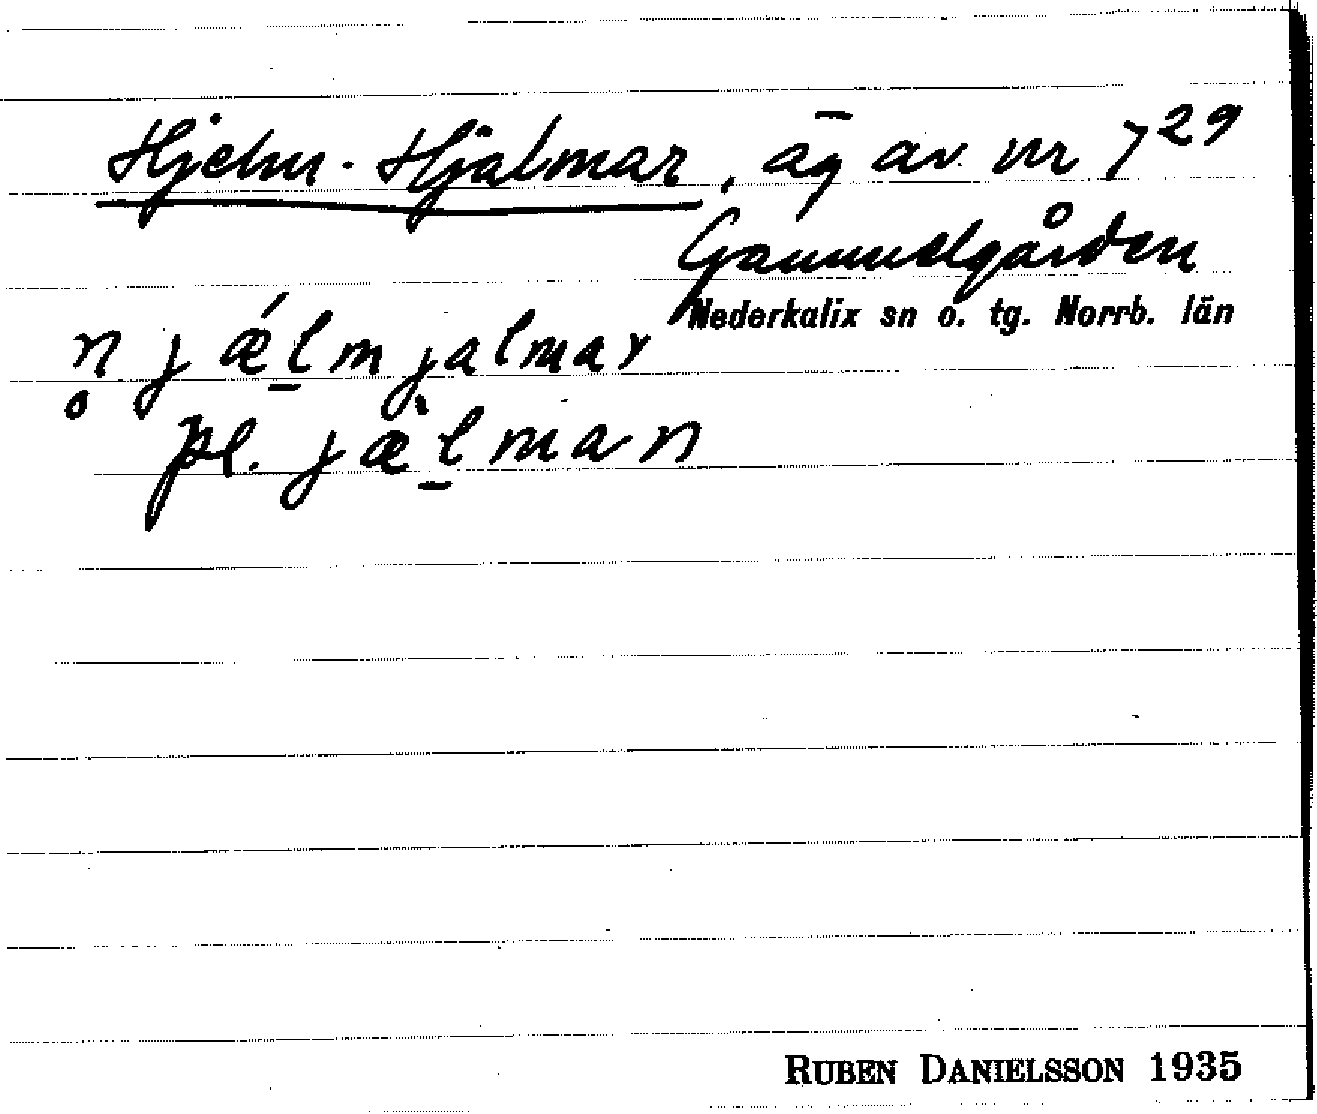 Hjelm-Hjalmar, äg av nr 7²⁹
Gammelgården
Nederkalix sn o. tg. Norrb. län
n̥ jǽl̲mjalmar
pl. jæ̀l̲man
RUBEN DANIELSSON 1935